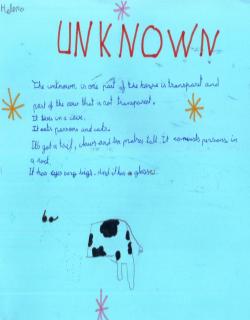 Helena
UNKNOWN
The unknown is one part of the horse is transparent and
part of the cow that is not transparent.
It lives in a cave.
It eats persons and cats.
It's got a tail, claws and
It
persons in
a
It has eyes very big. And has glasses.